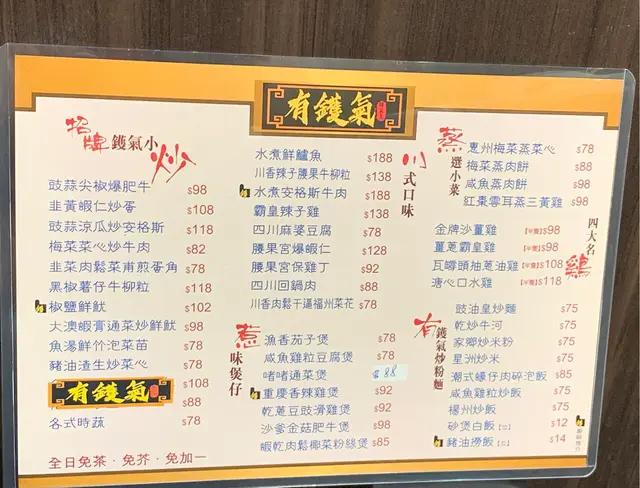 有鑊氣
招牌鑊氣小炒
豉蒜尖椒爆肥牛 $98
韭黃蝦仁炒蛋 $108
豉蒜涼瓜炒安格斯 $118
梅菜菜心炒牛肉 $82
韭菜肉鬆菜甫煎蛋角 $78
黑椒薯仔牛柳粒 $118
椒鹽鮮魷 $102
大澳蝦膏通菜炒鮮魷 $98
魚湯鮮竹泡菜苗 $78
豬油渣生炒菜心 $78
有鑊氣 $108
$88
各式時蔬 $78
全日免茶·免芥·免加一
川式口味
水煮鮮鱸魚 $188
川香辣子腰果牛柳粒 $138
水煮安格斯牛肉 $188
霸皇辣子雞 $138
四川麻婆豆腐 $78
腰果宮爆蝦仁 $128
腰果宮保雞丁 $92
四川回鍋肉 $88
川香肉鬆干逼福州菜花 $78
惹味煲仔
漁香茄子煲 $78
咸魚雞粒豆腐煲 $78
啫啫通菜煲 $88
重慶香辣雞煲 $92
乾蔥豆豉滑雞煲 $92
沙爹金菇肥牛煲 $98
蝦乾肉鬆椰菜粉絲煲 $85
蒸選小菜
惠州梅菜蒸菜心 $78
梅菜蒸肉餅 $88
咸魚蒸肉餅 $98
紅棗雲耳蒸三黃雞 $98
四大名雞
金牌沙薑雞 $98
薑蔥霸皇雞 $98
瓦罉頭抽蔥油雞 $108
溏心口水雞 $118
有鑊氣炒粉麵
豉油皇炒麵 $75
乾炒牛河 $75
家鄉炒米粉 $75
星洲炒米 $75
潮式蠔仔肉碎泡飯 $85
咸魚雞粒炒飯 $75
楊州炒飯 $75
砂煲白飯 $12
豬油撈飯 $14